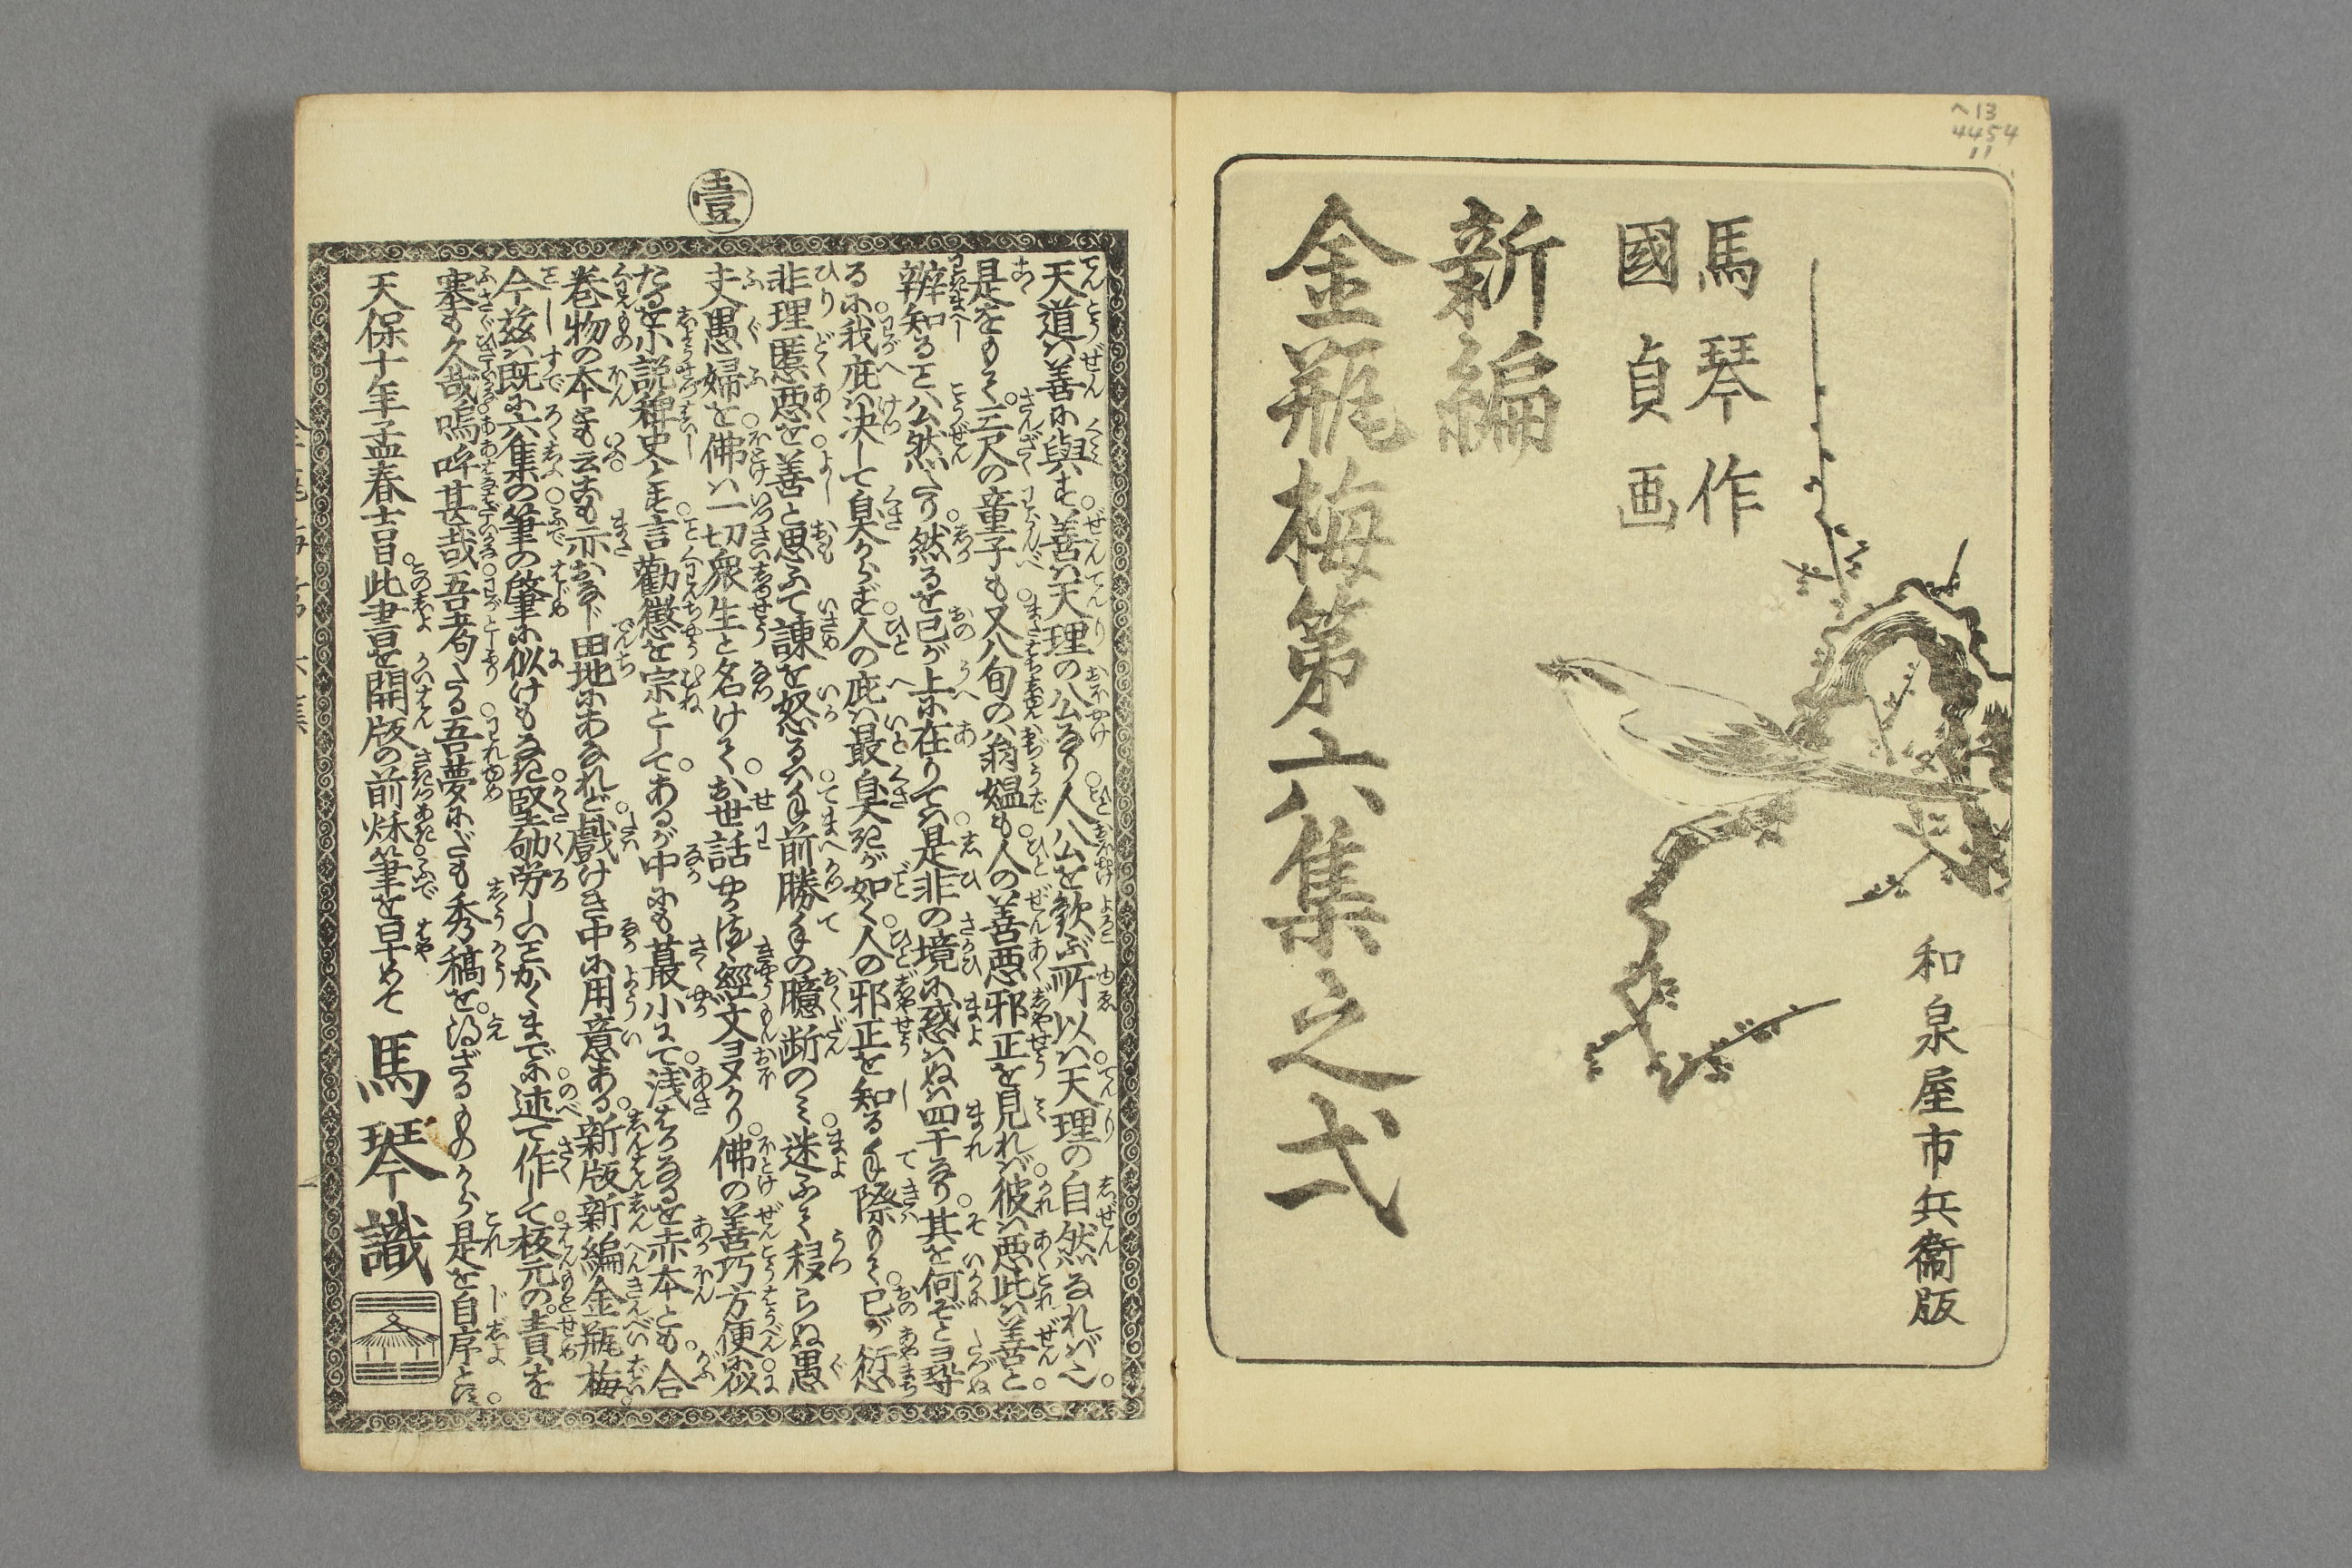 へ13
4454
11
馬琴作
國貞画
新編
金瓶梅第六集之弍
和泉屋市兵衞版
壹
天道ハ善に與す善ハ天理の公なり人公を歓ぶ所以ハ天理の自然なれバ
是をもて三尺の童子も又八旬の翁媼も人の善悪邪正を見れバ彼ハ悪此ハ善と
辨知ること公然たり然るを己が上に在りてハ是非の境に惑ハぬハ四干なり其を何ぞとヨ尋
るに我庇ハ决して臭からず人の庇ハ最臭きが如く人の邪正を知る手際もて己が愆
非理慝悪を善と思ふて諌を怒るハ手前勝手の臆断のミ迷ふて移らぬ愚
夫愚婦を佛ハ一切衆生と名けて
佛の善巧方便に似
たるを小説稗史とす言勸懲を宗としてあるが中にも最小にて浅はかなるを赤本とも合
巻物の本とも云
田地にあなれど戯けき中に用意ある新版新編金瓶梅
今茲ハ既に六集の筆の肇に似けもなき堅劬労しいことかくまでに述て作して板元の責を
塞も久哉嗚呼甚哉吾者たる吾夢にだも秀稿を得ざるものから是を自序とす
天保十年孟春吉日此書を開版の前秌筆を早めて
馬琴識